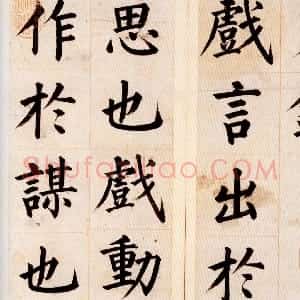 戲言出於
思也戲動
作於謀也
Shufamiao.com